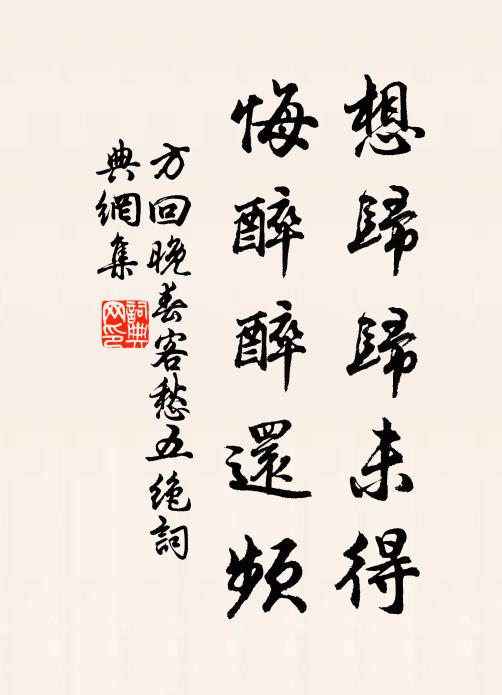 想歸歸未得
悔醉醉還頻
方回晚春客愁五绝詞
典網集
詞典
网印